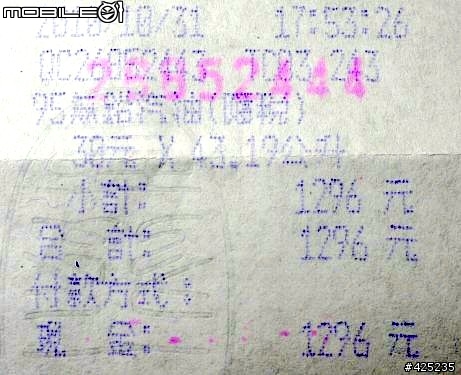 MOBILE01
2010/10/31 17:53:26
25052444
95無鉛汽油
30元 X 43.19公升
小計: 1296 元
合 計: 1296 元
付款方式:
現 金: 1296 元
#425235